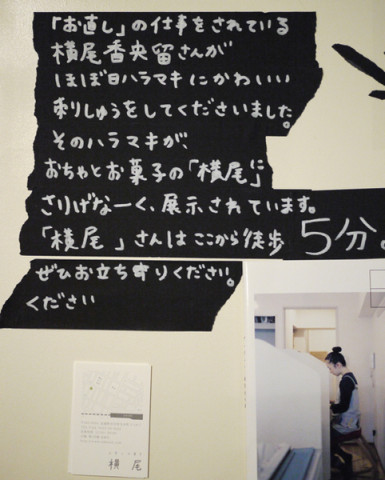 「お直し」の仕事をされている
横尾香央留さんが
ほぼ日ハラマキにかわいい
刺りしゅうをしてくださいました。
そのハラマキが、
おちゃとお菓子の「横尾」に
さりげなーく、展示されています。
「横尾 」さんはここから徒歩 5分。
ぜひお立ち寄りください。
ください
横 尾